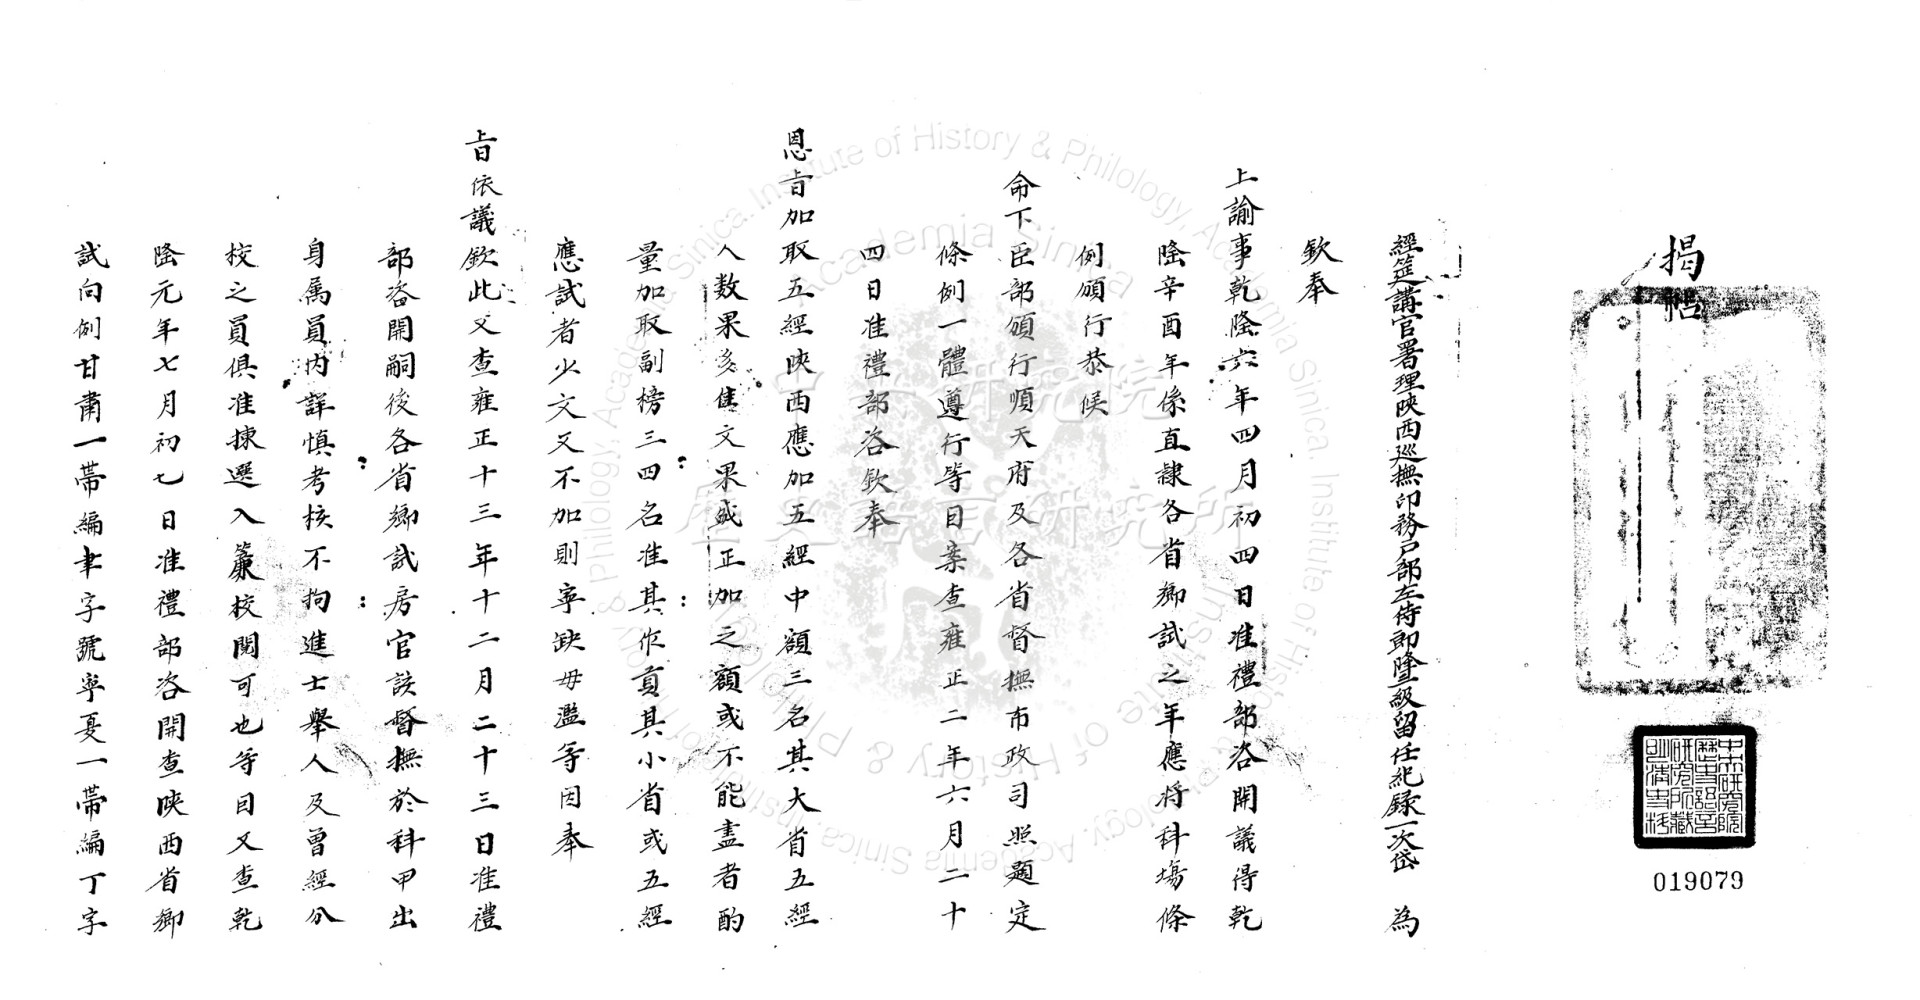 揭帖
經筵講官署理陝西巡撫印務戶部左侍郎隆一級留任紀錄一次岱　為
欽奉
上諭事乾隆六年四月初四日准禮部咨開議得乾
隆辛酉年係直隸各省鄉試之年應將科塲條
例頒行恭候
命下臣部頒行順天府及各省督撫布政司照題定
條例一體遵行等因案查雍正二年六月二十
四日准禮部咨欽奉
恩旨加取五經陝西應加五經中額三名其大省五經
人数果多佳文果盛正加之額或不能盡者酌
量加取副榜三四名准其作貢其小省或五經
應試者少文又不加則寧缺毋濫等因奉
旨依議欽此又查雍正十三年十二月二十三日准禮
部咨開嗣後各省鄉試房官該督撫於科甲出
身属員内詳慎考核不拘進士舉人及曾經分
校之員俱准揀選入簾校閱可也等因又查乾
隆元年七月初七日准禮部咨開查陝西省鄉
試向例甘肅一帶編聿字號寧夏一帶編丁字
中央研究院歷史語言研究所藏明清史料
019079
中央研究院
歷史語言研究所
Academia Sinica
Institute of History & Philology, Academia Sinica.